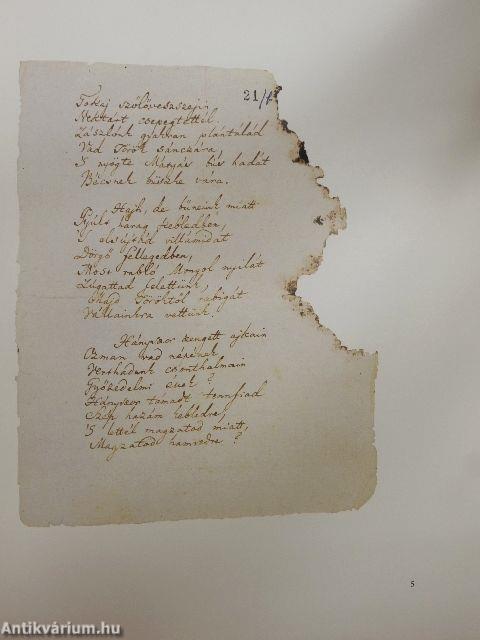 21/1
Tokaj szőlővesszejin
Nektárt csepegtettél.
Zászlónk gyakran plántálád
Vad Török sánczára,
'S nyögte Mátyás bús hadát
Bécsnek büszke vára.
Hajh, de bűneink miatt
Gyúlt harag kebledben,
'S elsújtád villámidat
Dörgő fellegedben,
Most rabló Mongol nyilát
Zúgattad felettünk,
Majd Töröktől rabigát
Vállainkra vettünk.
Hányszor zengett ajkain
Ozman vad népének
Vert hadunk csonthalmain
Győzedelmi ének?
Hányszor támadt tennfiad
Szép hazám kebledre,
'S lettél magzatod miatt,
Magzatod hamvedre?
5
Antikvárium.hu